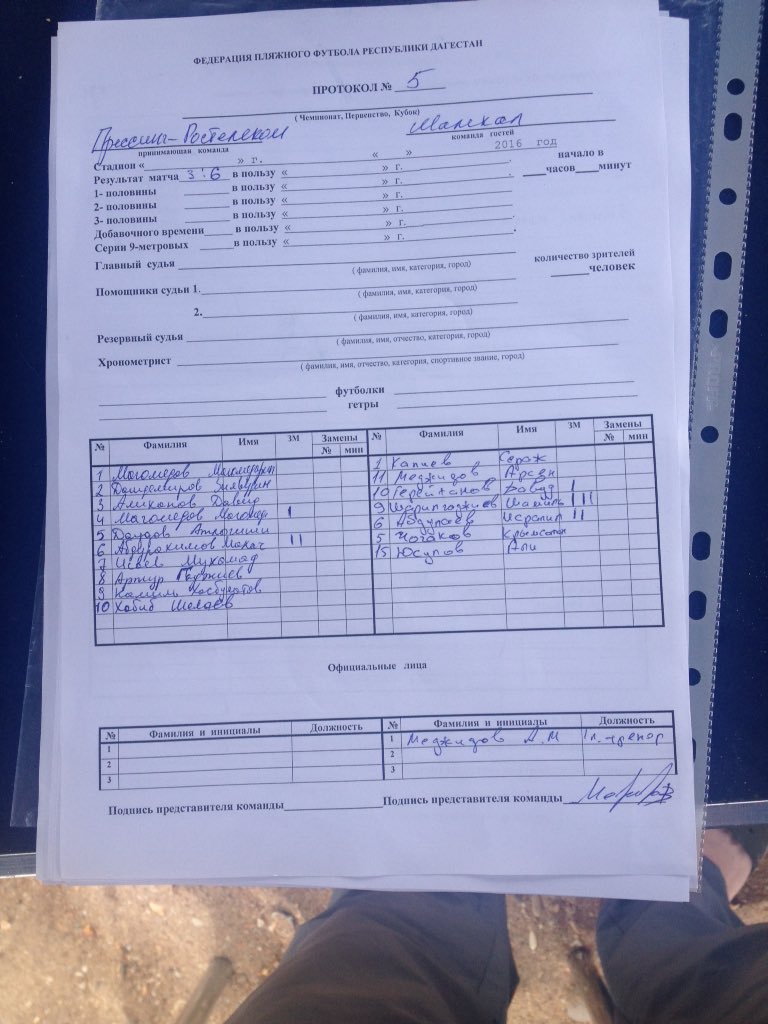 ФЕДЕРАЦИЯ ПЛЯЖНОГО ФУТБОЛА РЕСПУБЛИКИ ДАГЕСТАН
ПРОТОКОЛ № 5
( Чемпионат, Первенство, Кубок)
Прессинг-Ростелеком
принимающая команда команда гостей
Стадион « » г. « » 2016 год
Результат матча 3:6 в пользу « » г. начало в
1- половины в пользу « » г. часов минут
2- половины в пользу « » г.
3- половины в пользу « » г.
Добавочного времени в пользу « » г.
Серии 9-метровых в пользу « » г.
Главный судья количество зрителей
( фамилия, имя, категория, город) человек
Помощники судьи 1.
( фамилия, имя, категория, город)
2.
( фамилия, имя, категория, город)
Резервный судья
( фамилия, имя, отчество, категория, город)
Хронометрист
( фамилия, имя, отчество, категория, спортивное звание, город)
футболки
гетры
№ Фамилия Имя ЗМ Замены № Фамилия Имя ЗМ Замены
№ мин № мин
1 Магомедов 1 Капиев
2 11 Меджидов Арсен
3 Алиханов Давид 10 Давуд I
4 Магомедов Магомед I 9 Шарипгаджиев Шамиль III
5 Даудов 6 Абдулаев Исрапил II
6 Абдурахимов II 5
7 Исаев Мухамад 15 Юсупов Али
8 Артур Гаджиев
9 Камиль
10 Хабиб
Официальные лица
№ Фамилия и инициалы Должность № Фамилия и инициалы Должность
1 1 Меджидов А.М Гл.тренер
2 2
3 3
Подпись представителя команды Подпись представителя команды